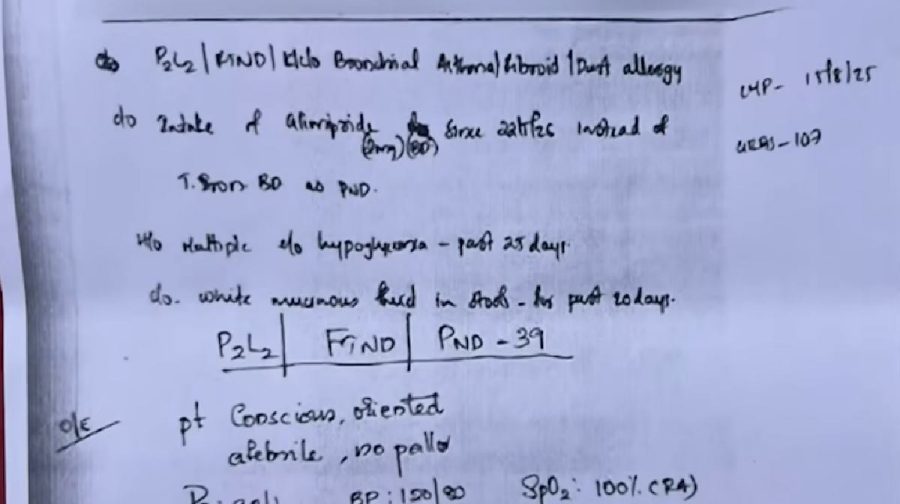 c/o P2L2 | FTND | K/c/o Bronchial Asthma / Fibroid / Dust allergy
LMP - 15/8/25
c/o Intake of Glimipride since 22/5/26 instead of
(2mg) (BD)
GRBS - 107
T. Iron BD as PND.
H/o Multiple e/o hypoglycemia - past 25 days.
c/o. white mucinous fluid in stools - for past 20 days.
P2L2 | FTND | PND - 39
O/E
pt Conscious, oriented
afebrile, no pallor
BP: 120/80 SpO2: 100% (RA)